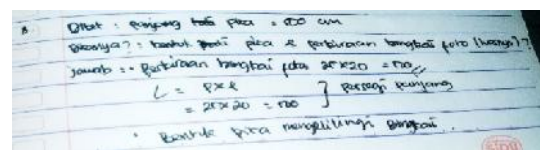 Diket : panjang pita = 100 cm
Ditanya? : bentuk pita & perkiraan bingkai foto (luasnya)?
Jawab : - Perkiraan bingkai foto 25x20 = 500
L = p x l
= 25x20 = 500 } persegi panjang
• Bentuk pita mengelilingi bingkai.